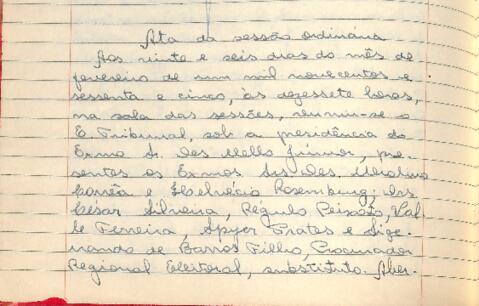 Ata da sessão ordinária
Aos vinte e seis dias do mês de
fevereiro de um mil novecentos e
sessenta e cinco, às dezessete horas,
na sala das sessões, reuniu-se o
E. Tribunal, sob a presidência do
Exmo Sr. Des Mello Júnior, pre-
sentes os Exmos Srs Des.
Corrêa e Rosemburg; drs
César Silveira, Régulo Peixoto, Val-
le Ferreira, Apyer Prates e Sige-
nando de Barros Filho, Procurador
Regional Eleitoral, substituto. Aber-